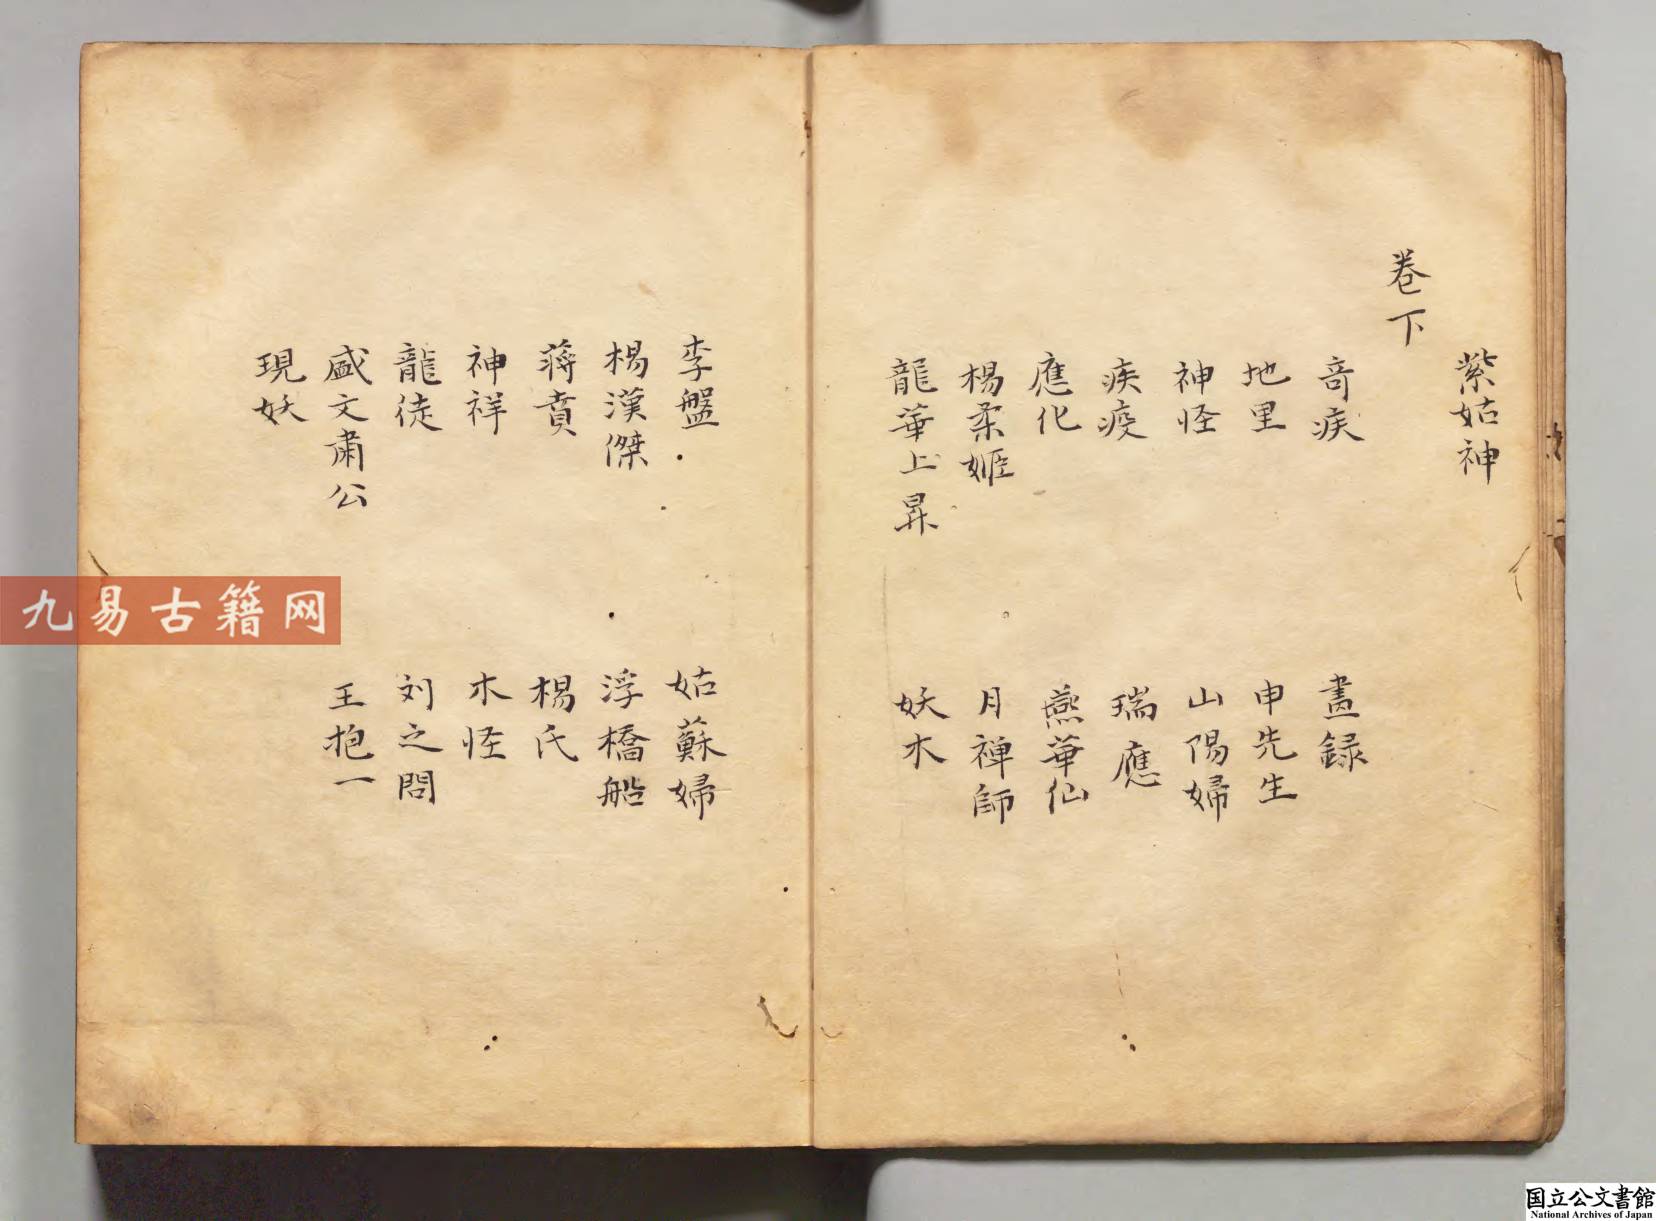 紫姑神
卷下
奇疾
畫録
地里
申先生
神怪
山陽婦
疾疫
瑞應
應化
燕華仙
楊柔姬
月禅師
龍華上昇
妖木
李盤
姑蘇婦
楊漢傑
浮橋船
蒋賁
楊氏
神祥
木怪
龍徒
刘之問
盛文肅公
王抱一
現妖
九易古籍网
国立公文書館
National Archives of Japan